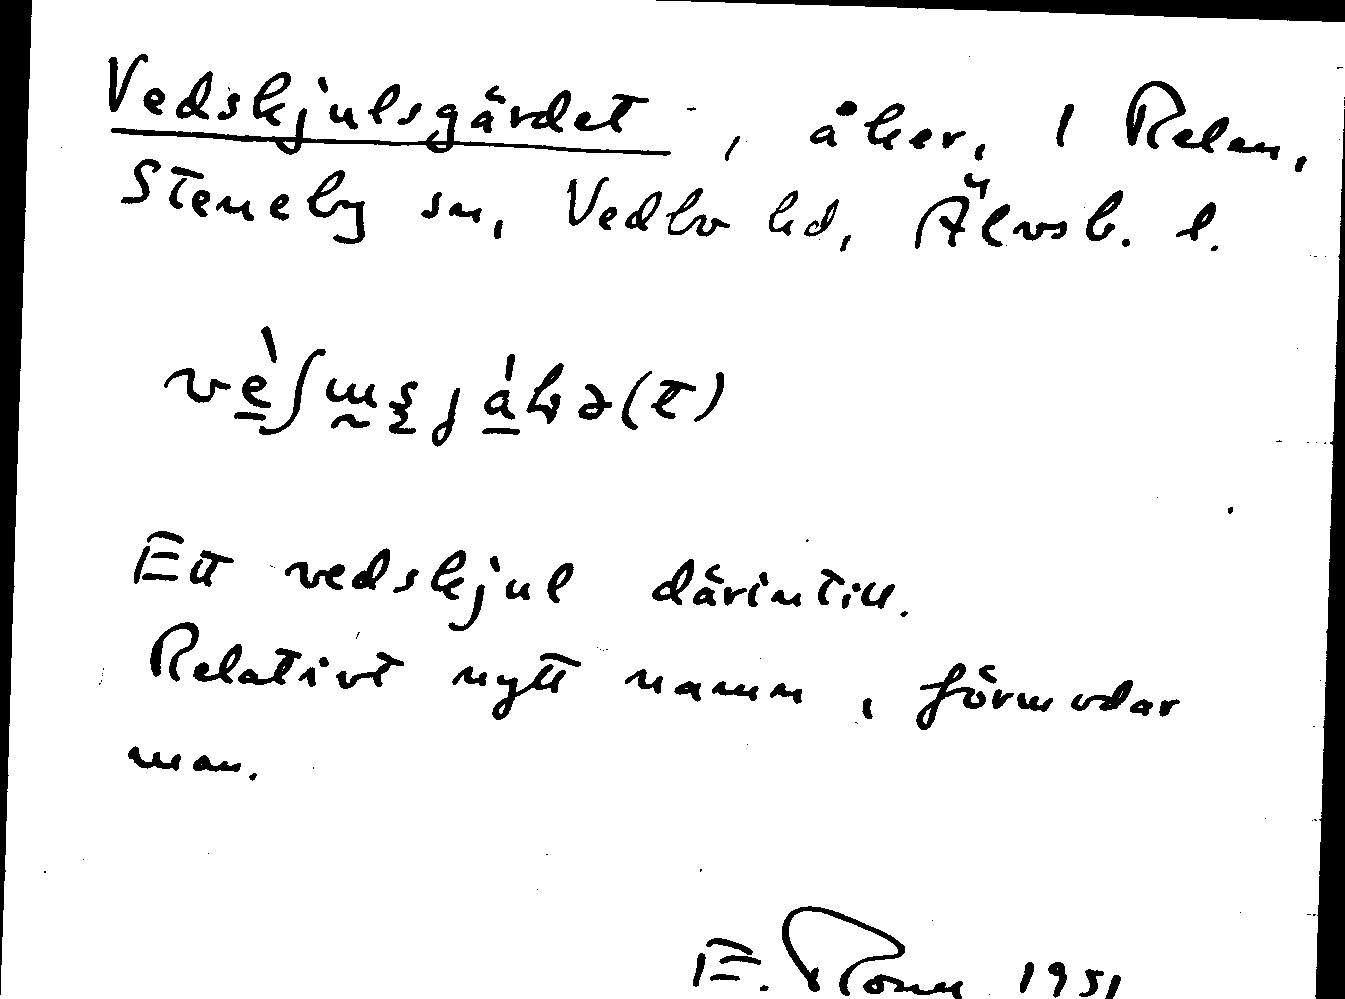 Vedskjulsgärdet, åker, 1 Relen,
Steneby sn, Vedbo hd, Älvsb. l.
Ett vedskjul därintill.
Relativt nytt namn, förmodar
man.
E. 1951